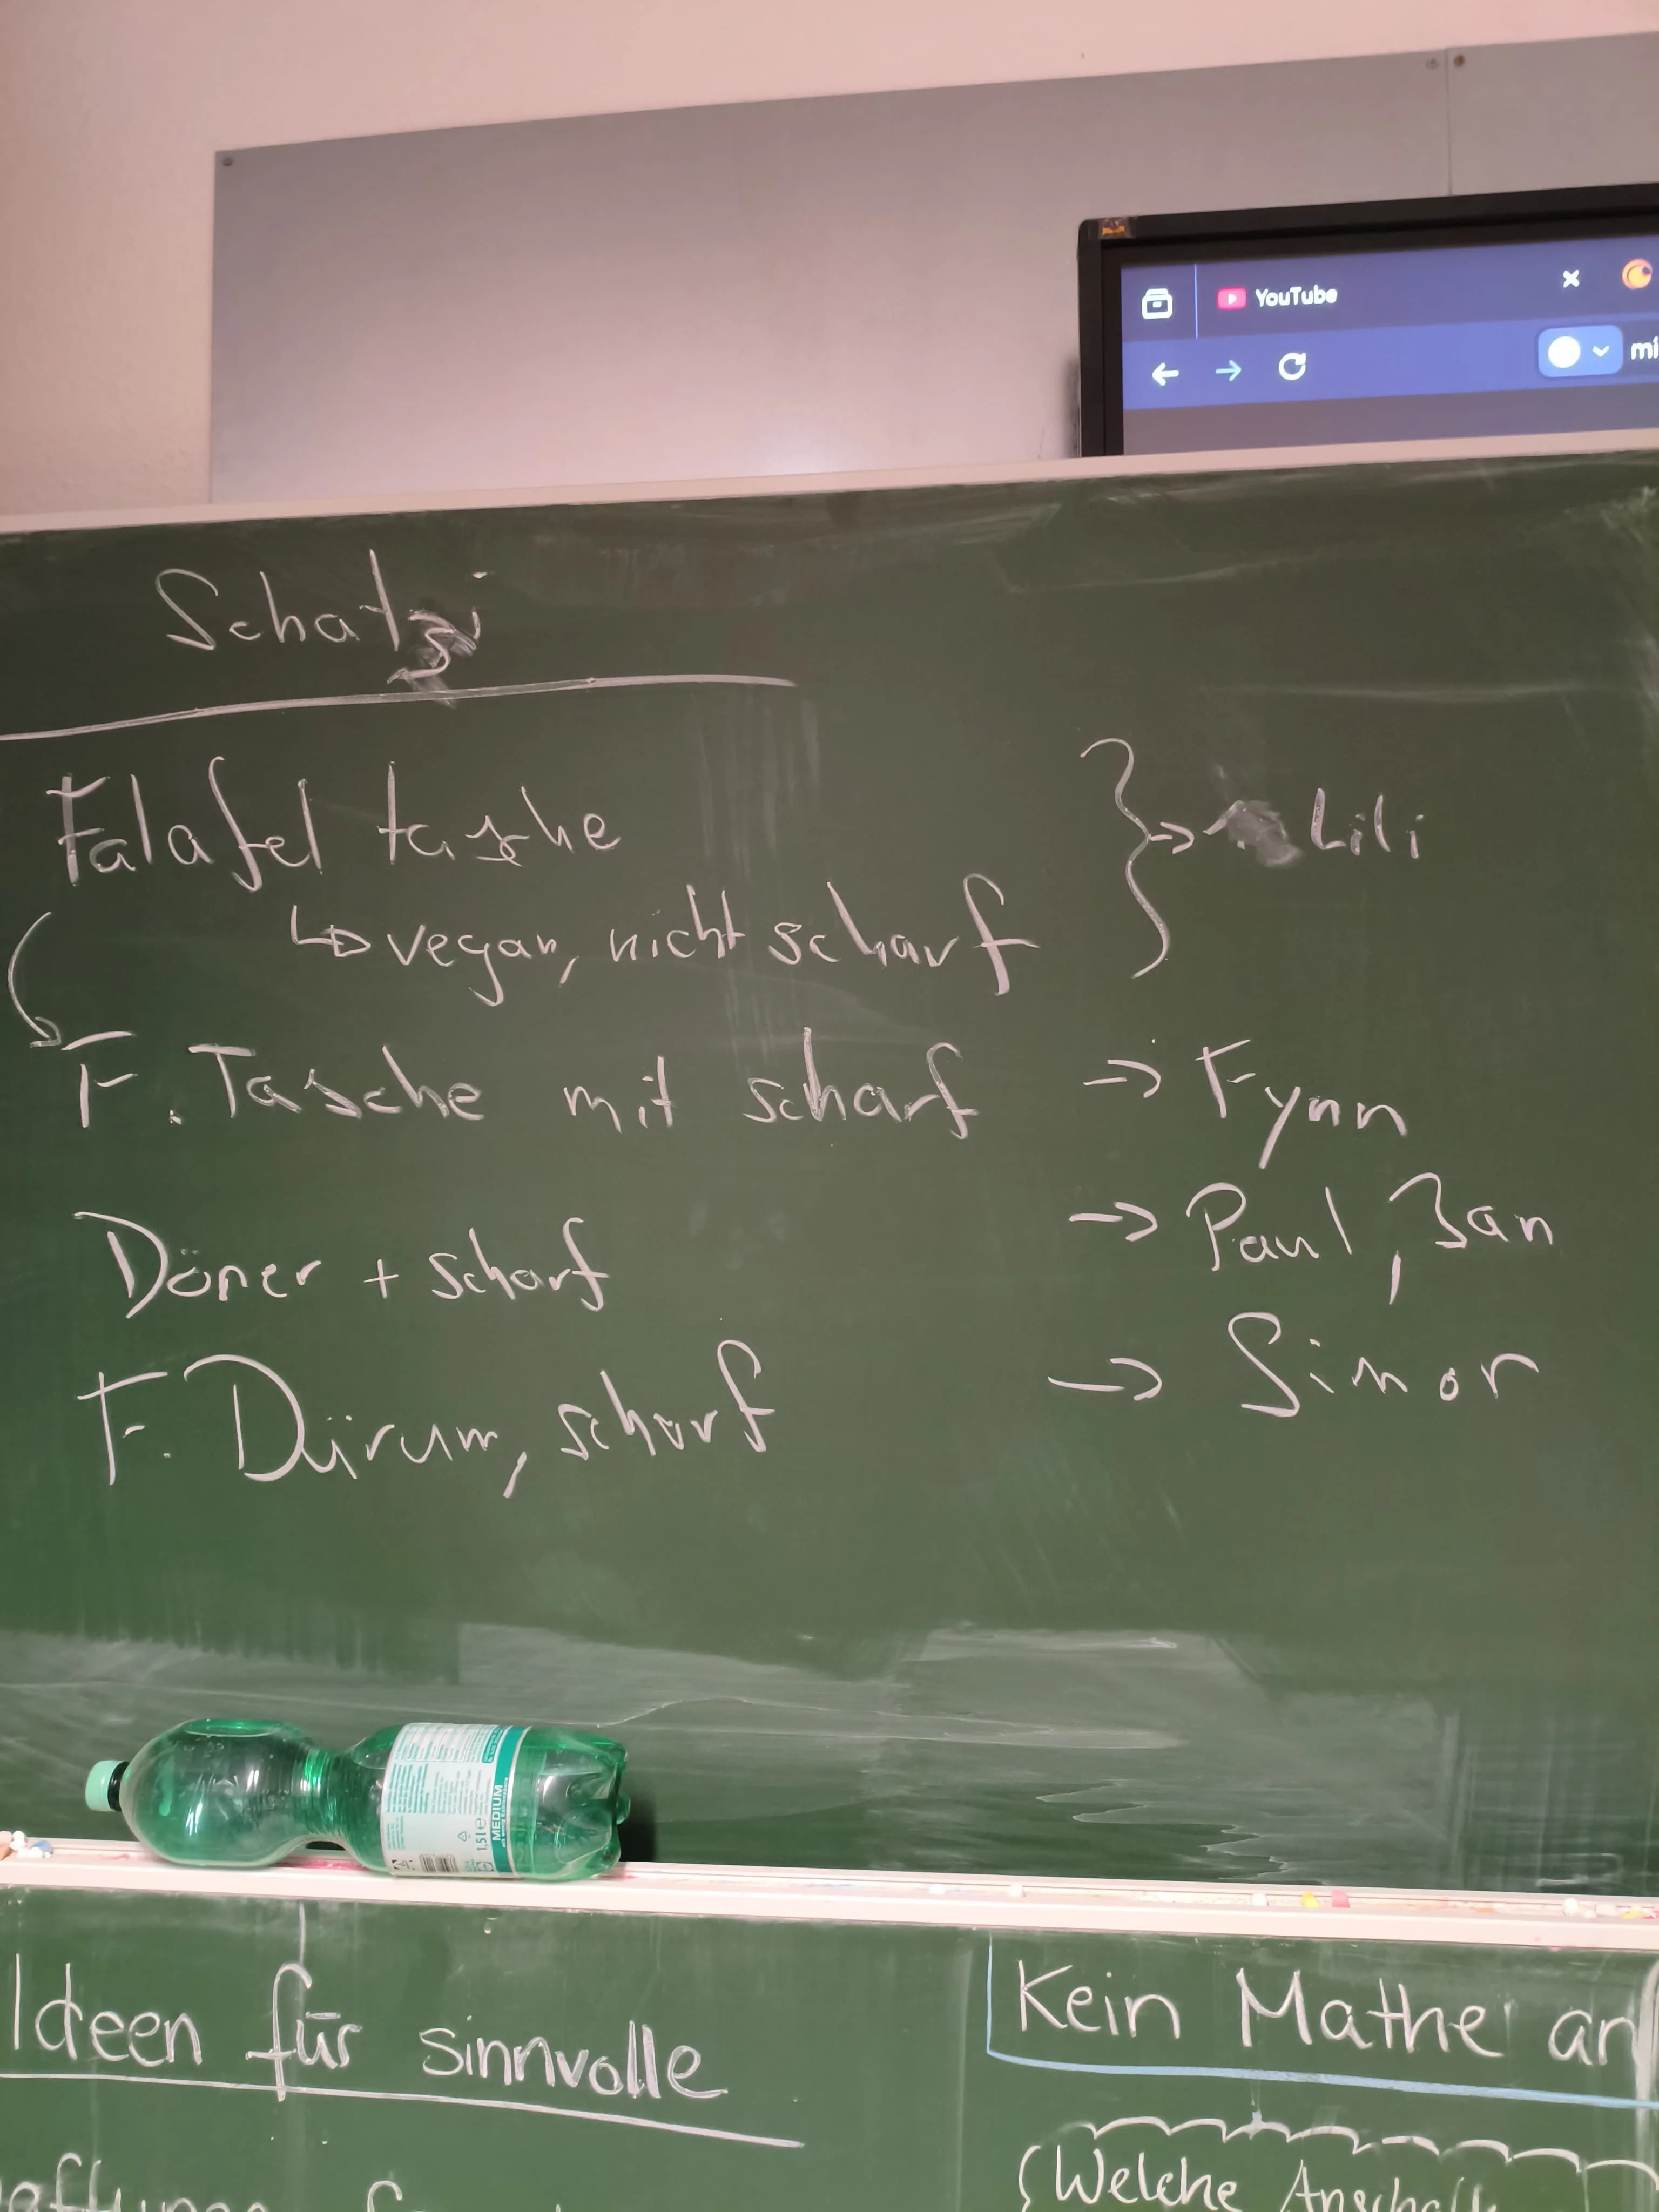 YouTube
mi
Schatzi
Falafel tasche → Lili
↳ vegan, nicht scharf
F. Tasche mit scharf → Fynn
Döner + scharf → Paul, Jan
F. Dürum, scharf → Simon
MEDIUM
1,5l e
Ideen für sinnvolle
Kein Mathe an
(Welche